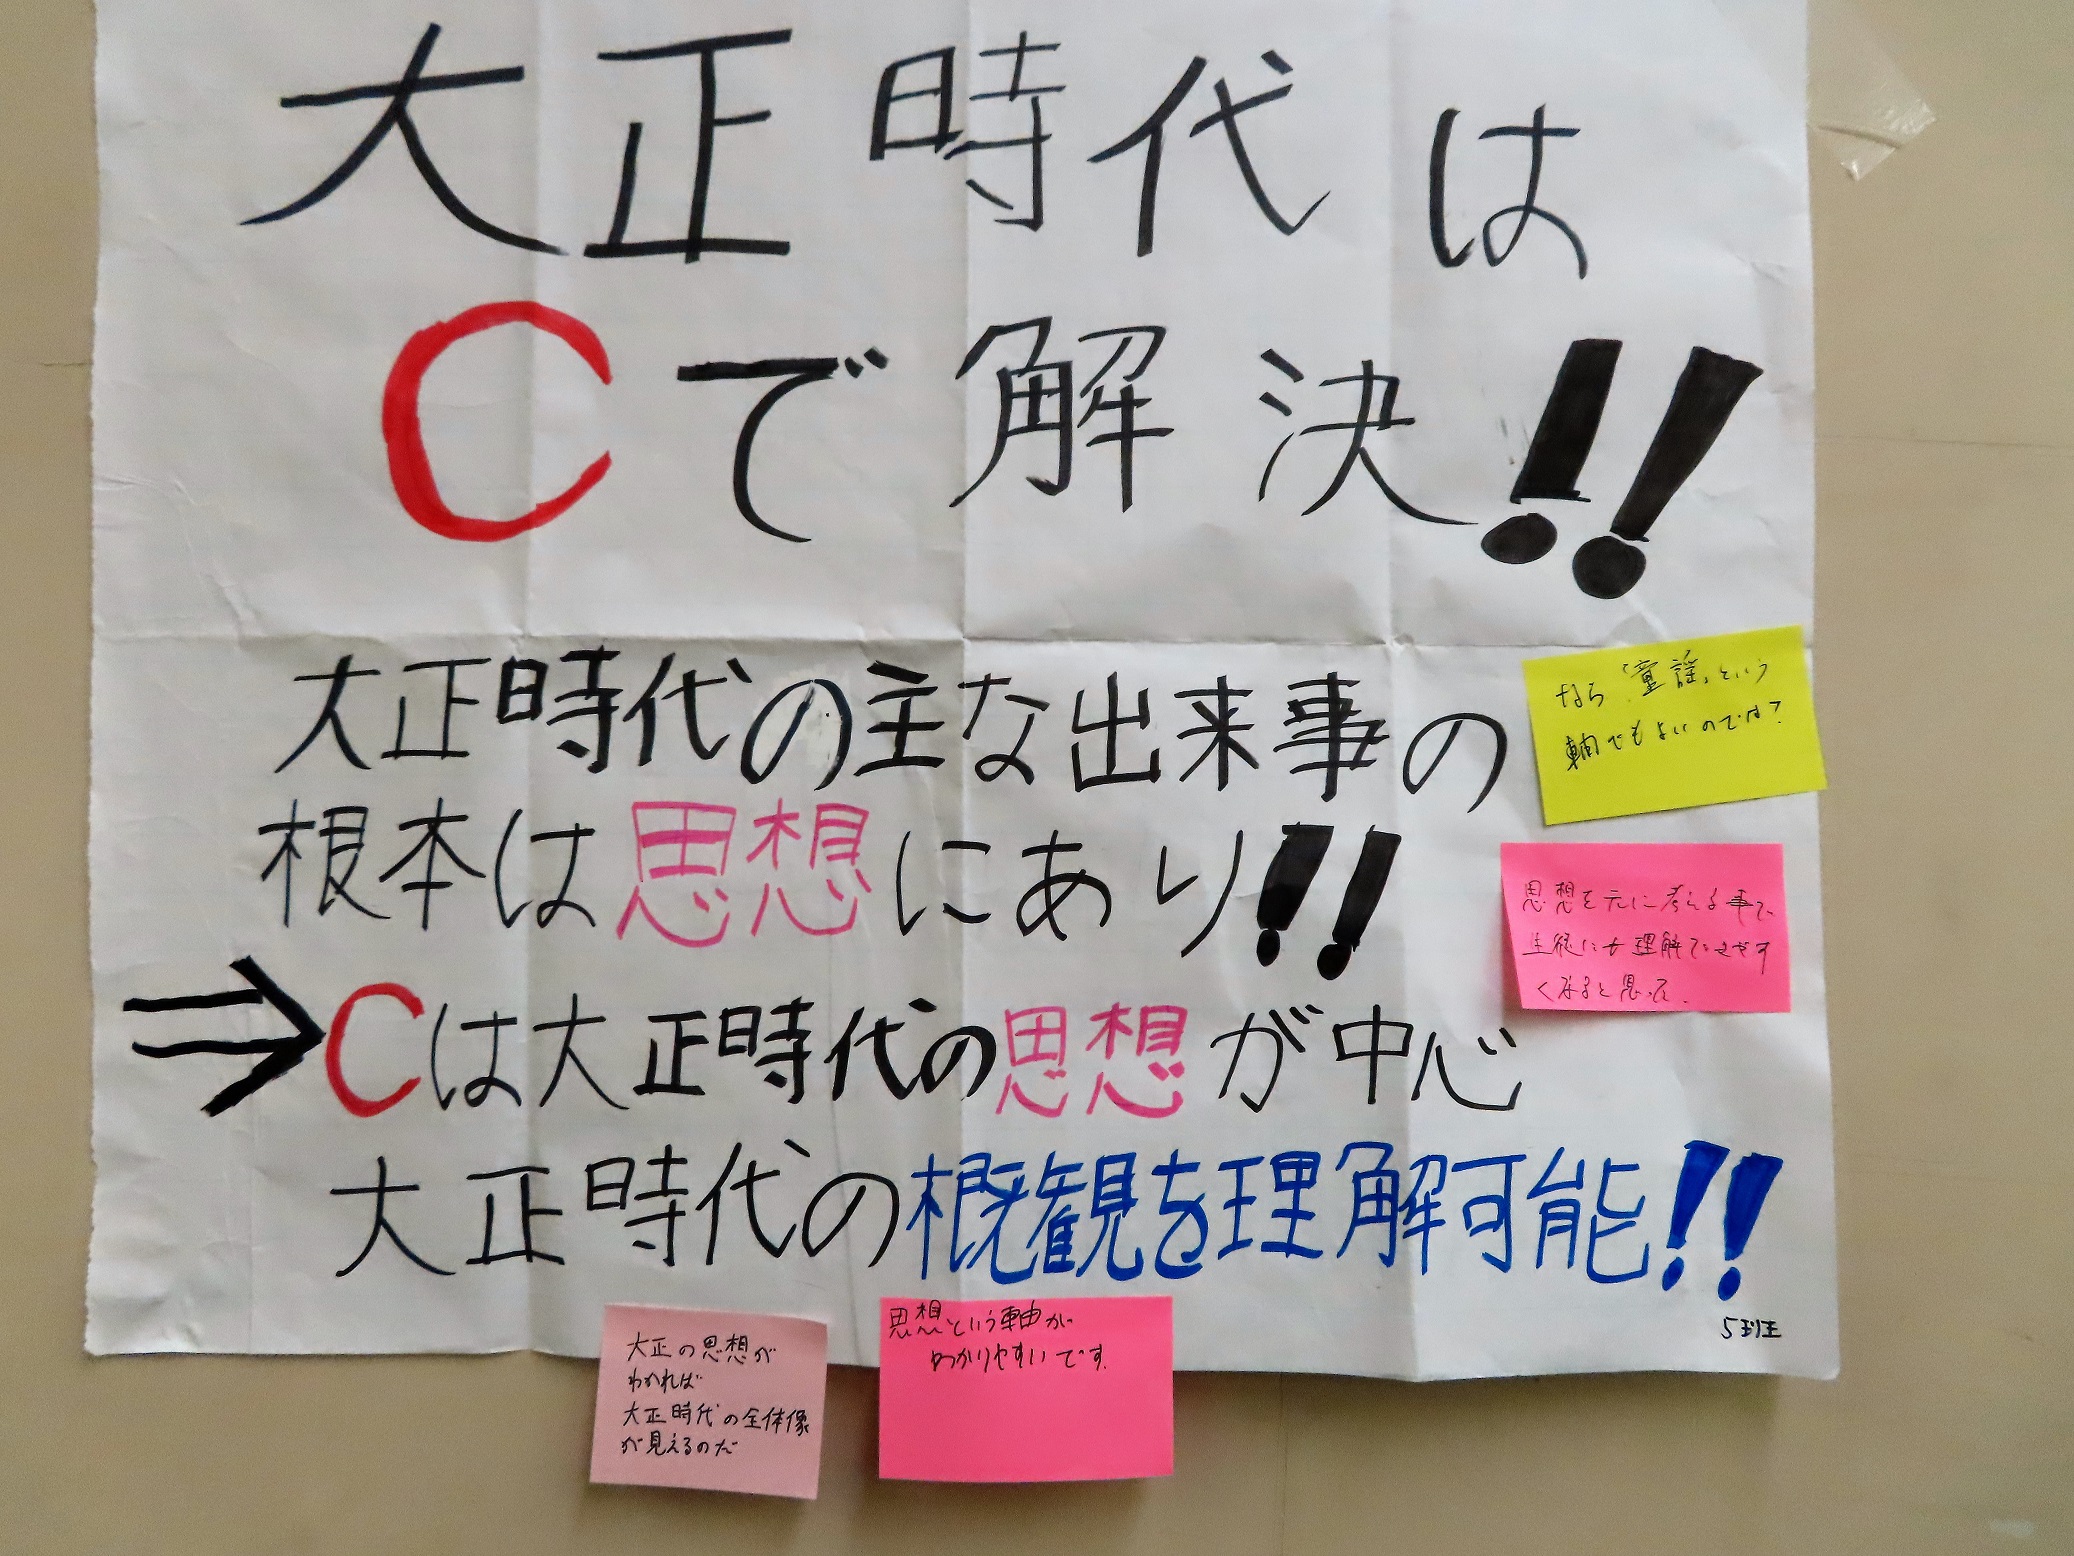 大正時代は
Cで解決!!
大正時代の主な出来事の
根本は思想にあり!!
⇒Cは大正時代の思想が中心
大正時代の概観を理解可能!!
5班
なら「童謡」という
軸でもよいのでは?
思想を元に考える事で
生徒にも理解できやす
くなると思った.
大正の思想が
わかれば
大正時代の全体像
が見えるのだ
思想という軸が
わかりやすいです.